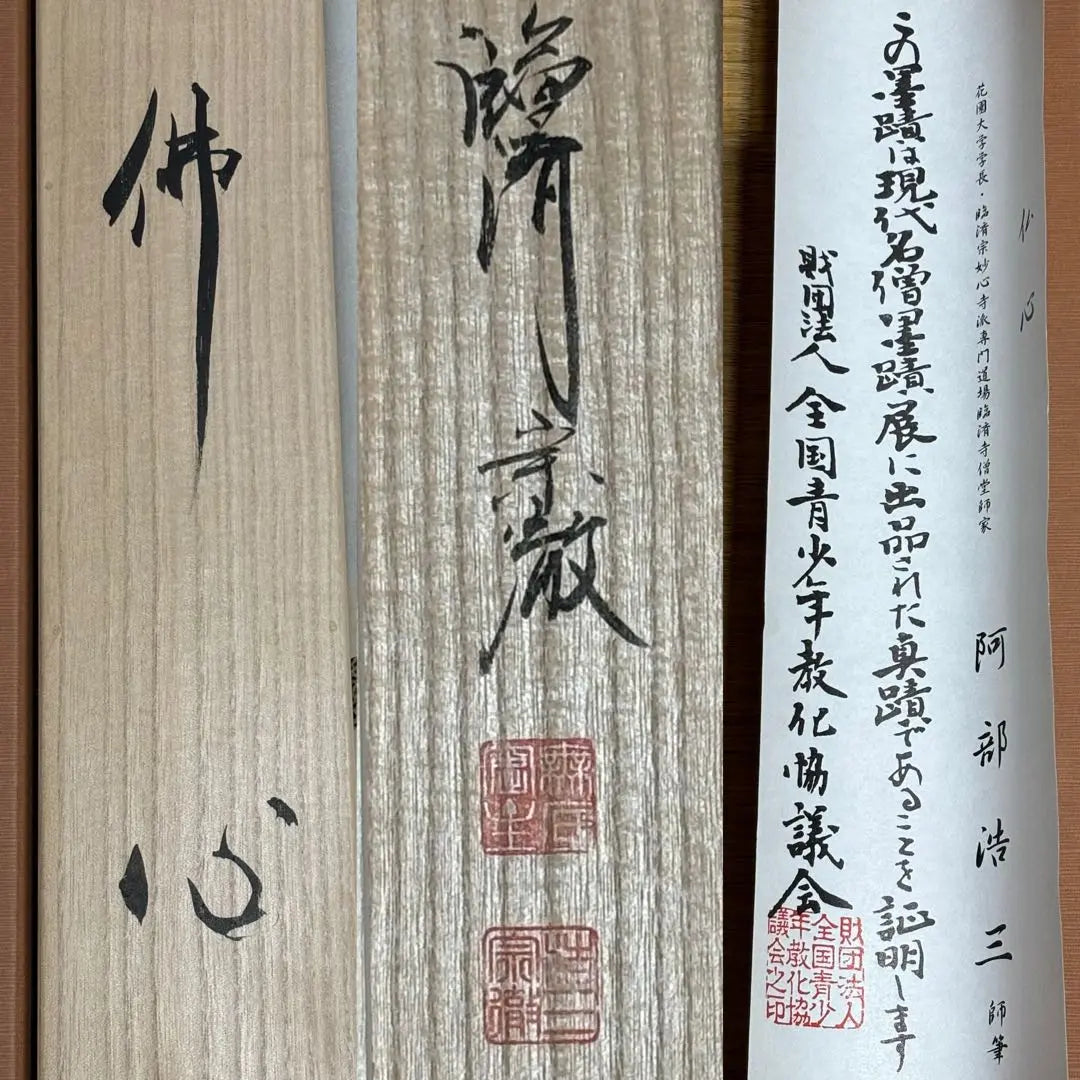 佛心
臨済
宗徹
浩三
宗徹
仏心
花園大学学長・臨済宗妙心寺派専門道場臨済寺僧堂師家
阿部浩三師筆
この墨蹟は現代名僧墨蹟展に出品された真蹟であることを証明します
財団法人 全国青少年教化協議会
財団法人
全国青少
年教化協
議会之印